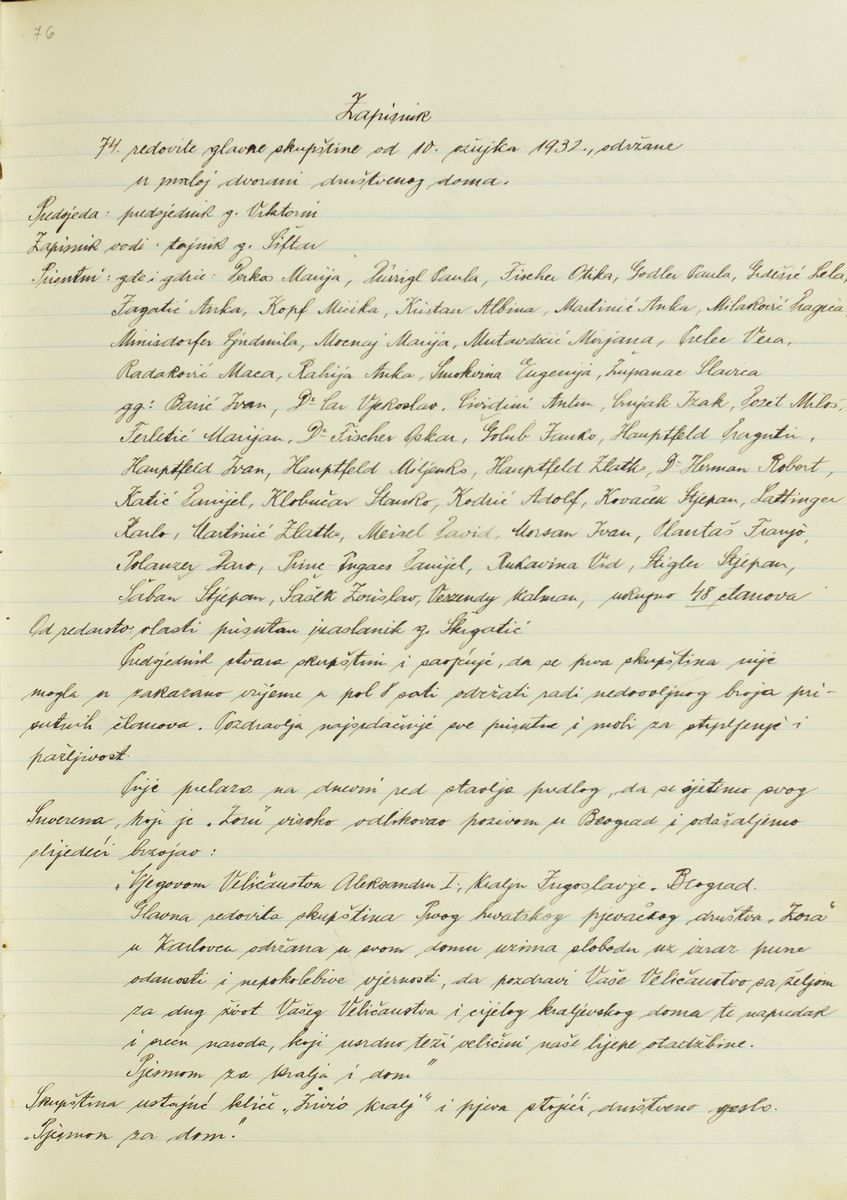 76
Zapisnik
74. redovite glavne skupštine od 10. ožujka 1932., održane
u maloj dvorani društvenog doma.
Predsjeda: predsjednik g. Viktorin
Zapisnik vodi: tajnik g. Šiftar
Prisutni: gđe i gdice: Perko Marija, Dürrigl Paula, Fischer Otika, Godler Paula, Grdešić Lela,
Jagatić Anka, Kopf Micika, Kristan Albina, Martinić Anka, Milaković Dragica
Minisdorfer Ljudmila, Mocnaj Marija, Mutavdžić Mirjana, Prelec Vera,
Radaković Maca, Rahija Anka, Smokvina Eugenija, Županac Slavica
gg: Barić Ivan, Dr Car Vjekoslav, Cividini Antun, Crnjak Izak, Dozet Miloš,
Ferletić Marijan, Dr Fischer Oskar, Golub Janko, Hauptfeld Dragutin,
Hauptfeld Ivan, Hauptfeld Miljenko, Hauptfeld Zlatko, Dr Herman Robert,
Katić Danijel, Klobučar Stanko, Kodrić Adolf, Kovaček Stjepan, Lattinger
Karlo, Martinić Zlatko, Meisel David, Morsan Ivan, Plantaš Franjo,
Polanzer Daro, Prine-Ingaes Danijel, Rukavina Vid, Stigler Stjepan,
Šaban Stjepan, Šašek Zorislav, Vezendy Kalman, ukupno 48 članova
Od redarstv. vlasti prisutan izaslanik g. Škrgatić
Predsjednik otvara skupštinu i saopćuje, da se prva skupština nije
mogla u zakazano vrijeme u pol 8 sati održati radi nedovoljnog broja pri-
sutnih članova. Pozdravlja najsrdačnije sve prisutne i moli za strpljenje i
pažljivost.
Prije prelaza na dnevni red stavlja predlog, da se sjetimo svog
Suverena, koji je „Zoru" visoko odlikovao pozivom u Beograd i odašaljemo
slijedeći brzojav:
„Njegovom Veličanstvu Aleksandru I., kralju Jugoslavije. Beograd.
Glavna redovita skupština Prvog hrvatskog pjevačkog društva „Zora"
u Karlovcu održana u svom domu uzima slobodu uz izraz pune
odanosti i nepokolebive vjernosti, da pozdravi Vaše Veličanstvo sa željom
za dug život Vašeg Veličanstva i cijelog kraljevskog doma te napredak
i sreću naroda, koji usrdno teži veličini naše lijepe otadžbine.
Pjesmom za kralja i dom"
Skupština ustajuć kliče „Živio kralj" i pjeva stojeći društveno geslo.
„Pjesmom za dom."